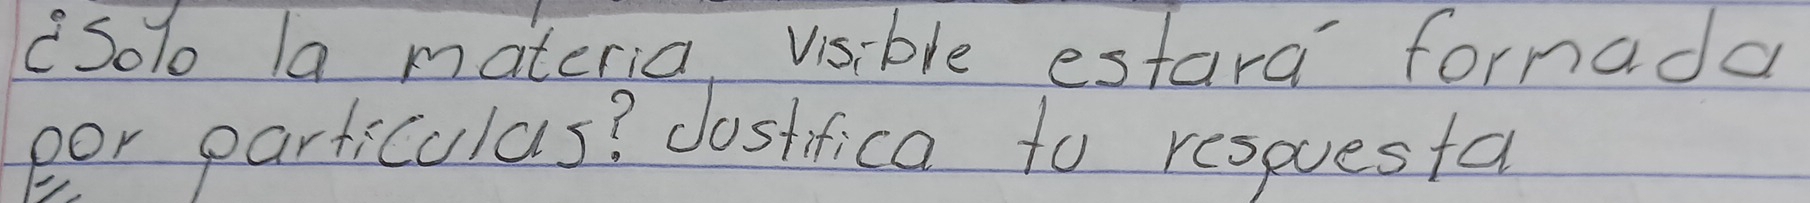 ¿Solo la materia, visible estará formada
por particulas? Justifica tu respuesta